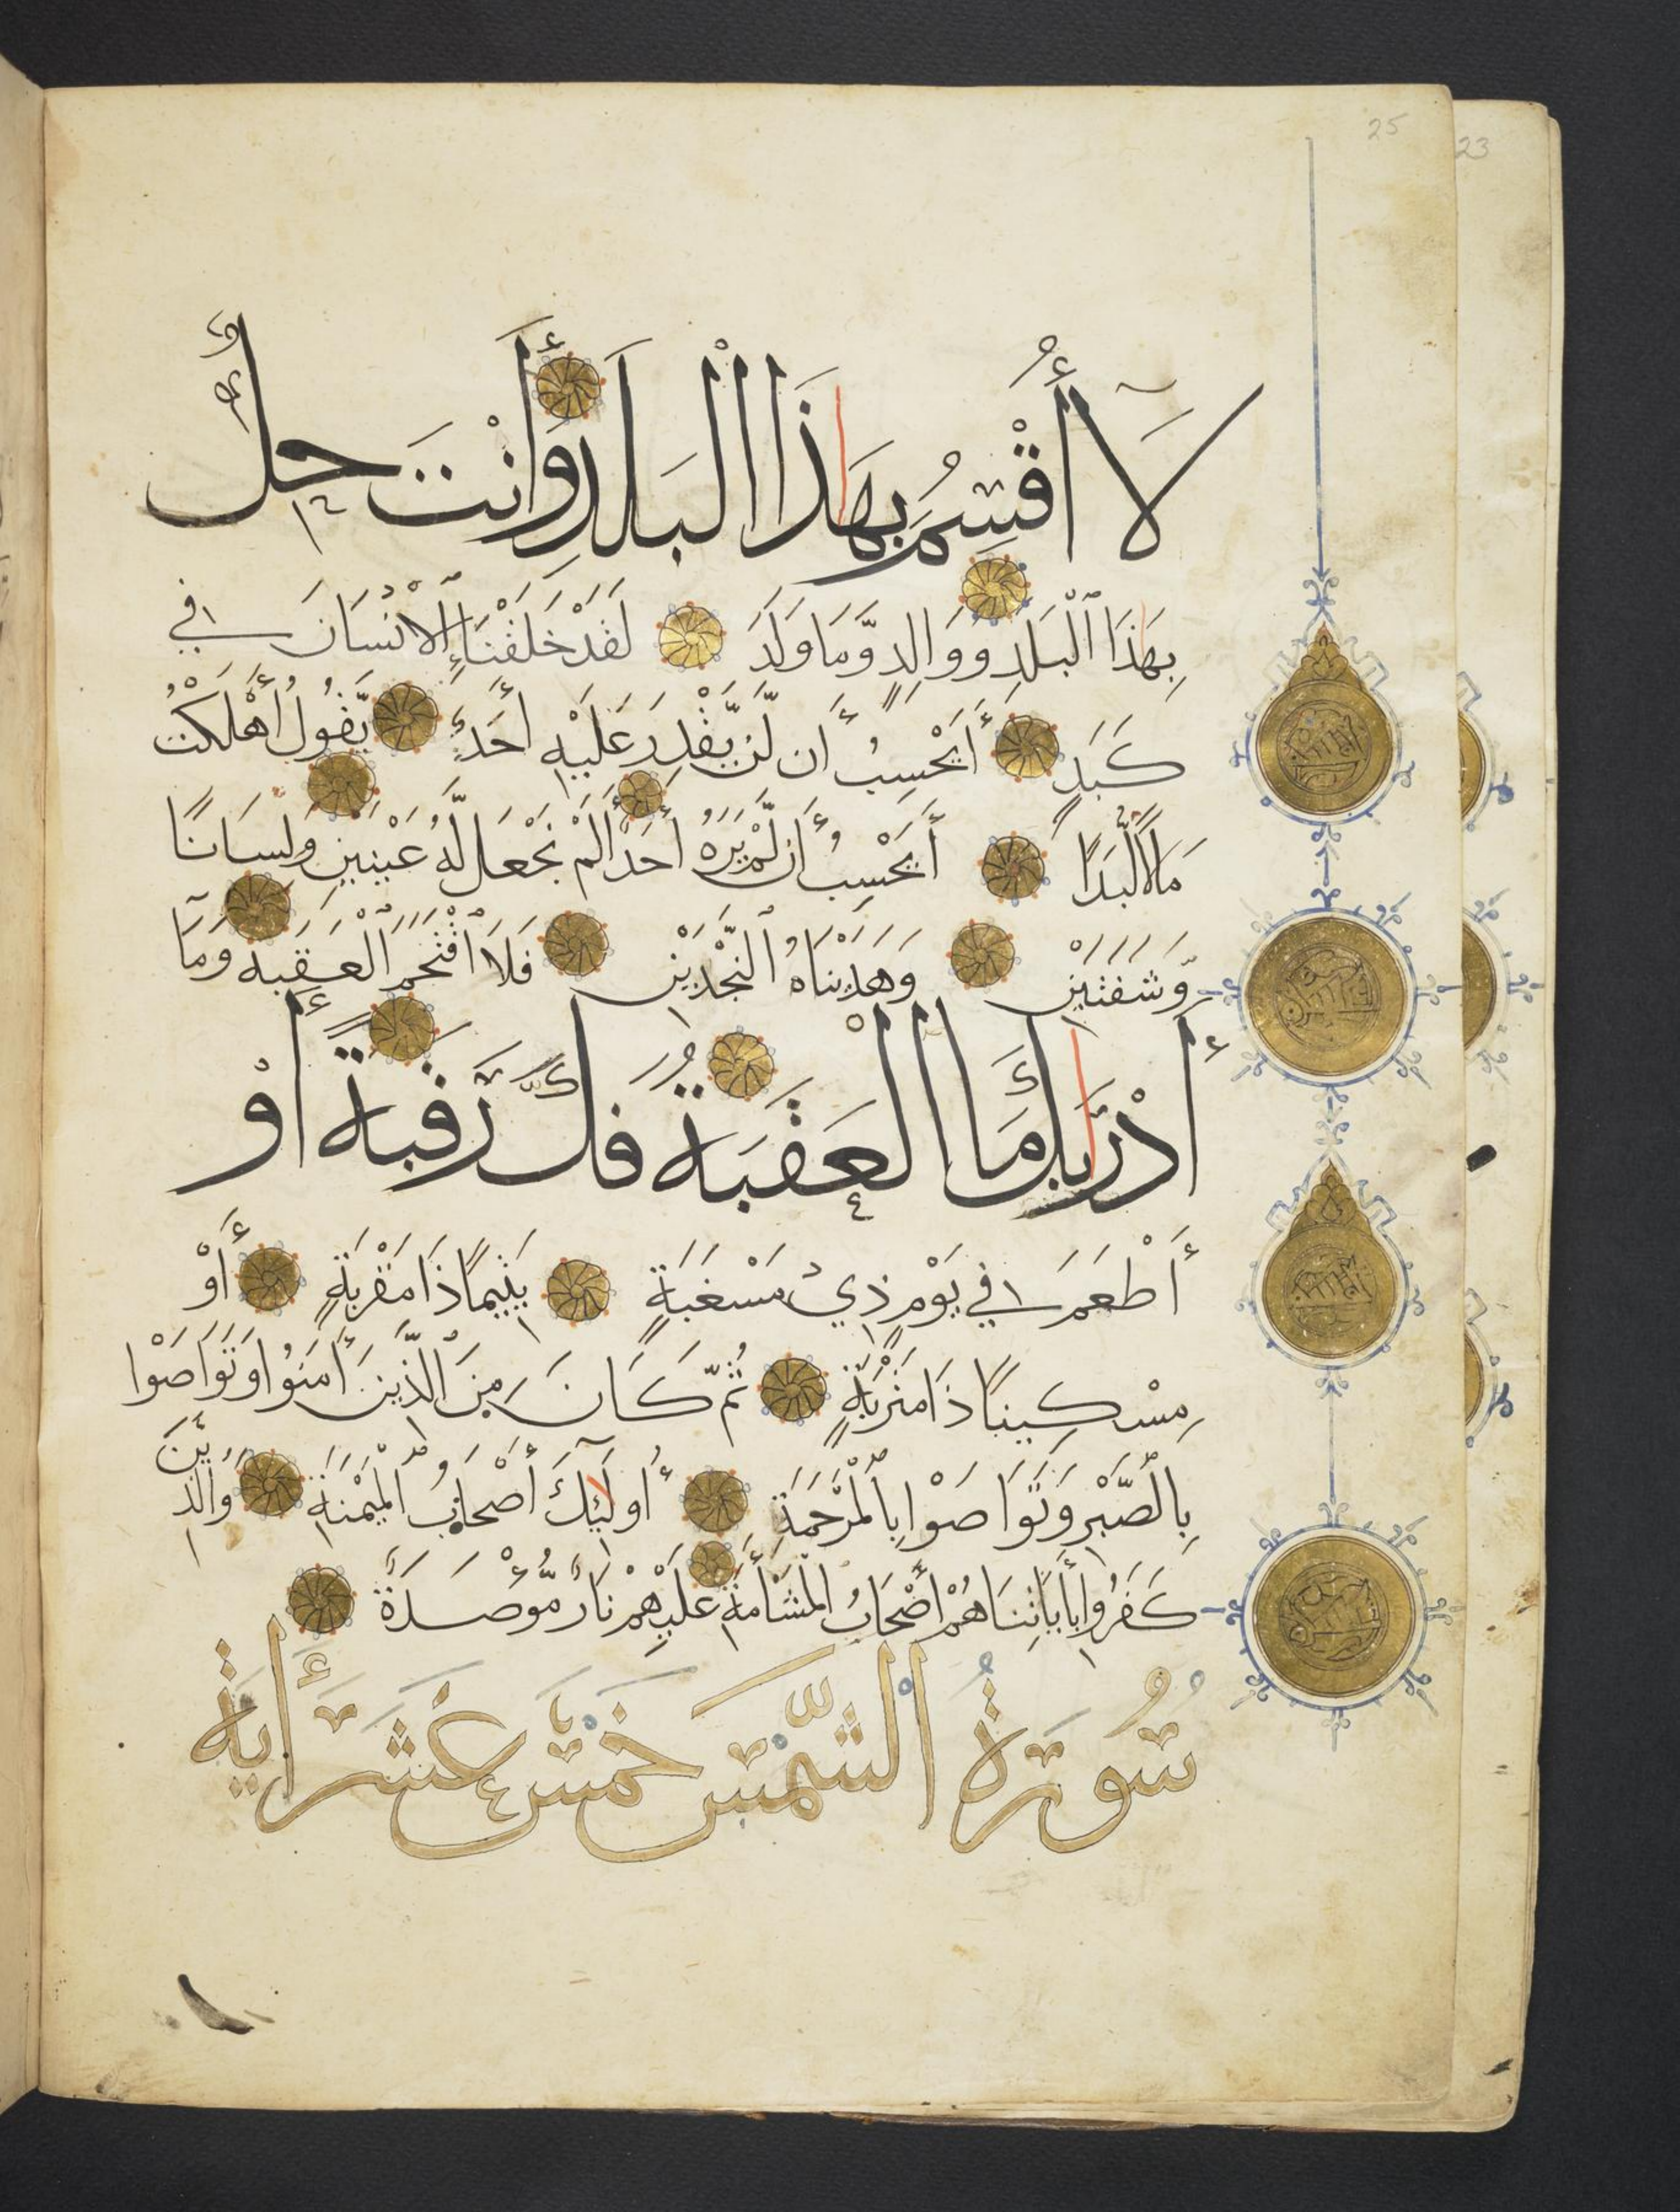 25
23
لَا أُقْسِمُ بِهَاذَا الْبَلَدِ وَأَنْتَ حِلٌّ
بِهَاذَا ٱلْبَلَدِ وَوَالِدٍ وَّمَا وَلَدَ لَقَدْ خَلَقْنَا ٱلْإِنْسَانَ فِي
كَبَدٍ أَيَحْسِبُ أَن لَّن يَّقْدِرَ عَلَيْهِ أَحَدٌ يَّقُولُ أَهْلَكْتُ
مَالًا لُّبَدًا أَيَحْسِبُ أَن لَّمْ يَرَهُ أَحَدٌ أَلَمْ نَجْعَل لَّهُ عَيْنَيْنِ وَلِسَانًا
وَّشَفَتَيْنِ وَهَدَيْنَاهُ ٱلنَّجْدَيْنِ فَلَا ٱقْتَحَمَ ٱلْعَقَبَةَ وَمَآ
أَدْرَىٰكَ مَا الْعَقَبَةُ فَكُّ رَقَبَةٍ أَوْ
أَطْعَمَ فِي يَوْمٍ ذِيْ مَسْغَبَةٍ يَتِيمًا ذَا مَقْرَبَةٍ أَوْ
مِسْكِينًا ذَا مَتْرَبَةٍ ثُمَّ كَانَ مِنَ ٱلَّذِينَ أَمَنُوا وَتَوَاصَوْا
بِالصَّبْرِ وَتَوَاصَوْا بِٱلْمَرْحَمَةِ أُولَآئِكَ أَصْحَابُ ٱلْمَيْمَنَةِ وَالَّذِينَ
كَفَرُوا بِأَيَاتِنَا هُمْ أَصْحَابُ الْمَشْأَمَةِ عَلَيْهِمْ نَارٌ مُّؤْصَدَةٌ
سُورَةُ الشَّمْسِ خَمْسَ عَشَرَ أَيَةً